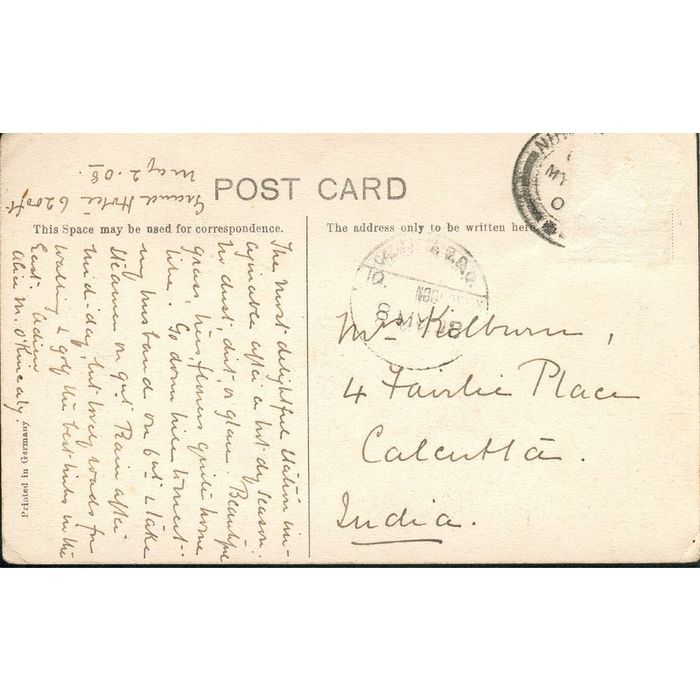 POST CARD
This Space may be used for correspondence.
The address only to be written here
Grand Hotel 6200 ft
May 2. 08.
The most delightful station
after a hot dry season.
No dust, or glare. Beautiful
green trees, flowers quite home
like. Go down hill
my husband on 6th & take
Steamer on 9th. Rain after
mid-day, but lovely roads for
walking & golf the best links in the
East. Adieu
Alice M. O'Kinealy
Mrs Kilburn,
4 Fairlie Place
Calcutta.
India.
NUW
MY
0
8 MY 08
Printed in Germany